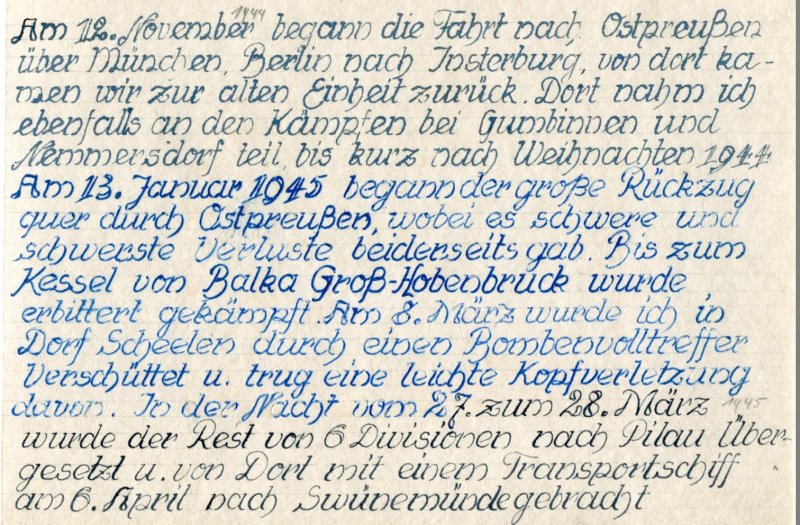 Am 12. November 1944 begann die Fahrt nach Ostpreußen
über München, Berlin nach Insterburg, von dort ka-
men wir zur alten Einheit zurück. Dort nahm ich
ebenfalls an den Kämpfen bei Gumbinnen und
Nemmersdorf teil, bis kurz nach Weihnachten 1944
Am 13. Januar 1945 begann der große Rückzug
quer durch Ostpreußen, wobei es schwere und
schwerste Verluste beiderseits gab. Bis zum
Kessel von Balka Groß-Hobenbruck wurde
erbittert gekämpft. Am 8. März wurde ich in
Dorf Scheelen durch einen Bombenvolltreffer
Verschüttet u. trug eine leichte Kopfverletzung
davon. In der Nacht vom 27. zum 28. März 1945
wurde der Rest von 6 Divisionen nach Pilau Über-
gesetzt u. von Dort mit einem Transportschiff
am 6. April nach Swünemünde gebracht